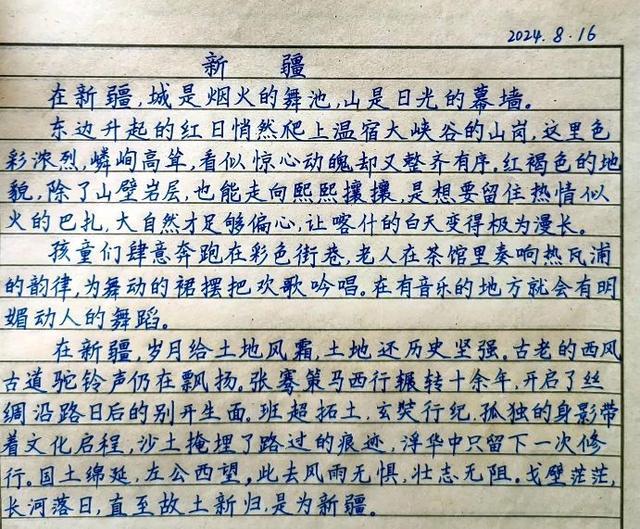 2024.8.16
新 疆
在新疆,城是烟火的舞池,山是日光的幕墙。
东边升起的红日悄然爬上温宿大峡谷的山岗,这里色
彩浓烈,嶙峋高耸,看似惊心动魄却又整齐有序。红褐色的地
貌,除了山壁岩层,也能走向熙熙攘攘,是想要留住热情似
火的巴扎,大自然才足够偏心,让喀什的白天变得极为漫长。
孩童们肆意奔跑在彩色街巷,老人在茶馆里奏响热瓦浦
的韵律,为舞动的裙摆把欢歌吟唱。在有音乐的地方就会有明
媚动人的舞蹈。
在新疆,岁月给土地风霜,土地还历史坚强。古老的西风
古道驼铃声仍在飘扬。张骞策马西行辗转十余年,开启了丝
绸沿路日后的别开生面。班超拓土,玄奘行纪,孤独的身影带
着文化启程,沙土掩埋了路过的痕迹,浮华中只留下一次修
行。国土绵延,左公西望,此去风雨无惧,壮志无阻。戈壁茫茫,
长河落日,直至故土新归,是为新疆。